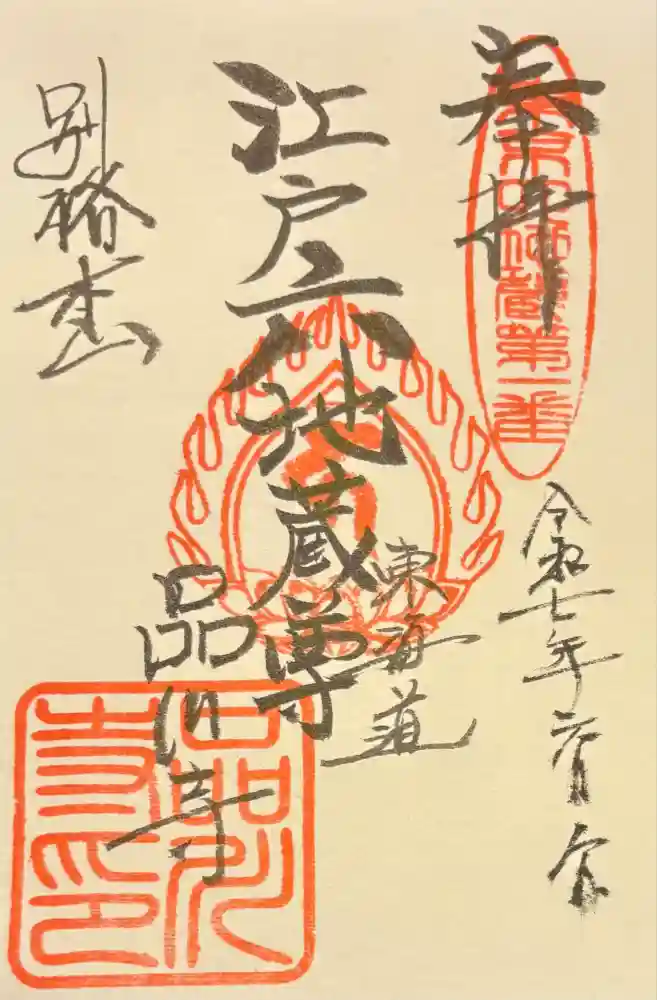 奉拝
蔵第一番
令和七年六月
江戸六地蔵尊
東海道
品川寺
別格本山
品川寺印